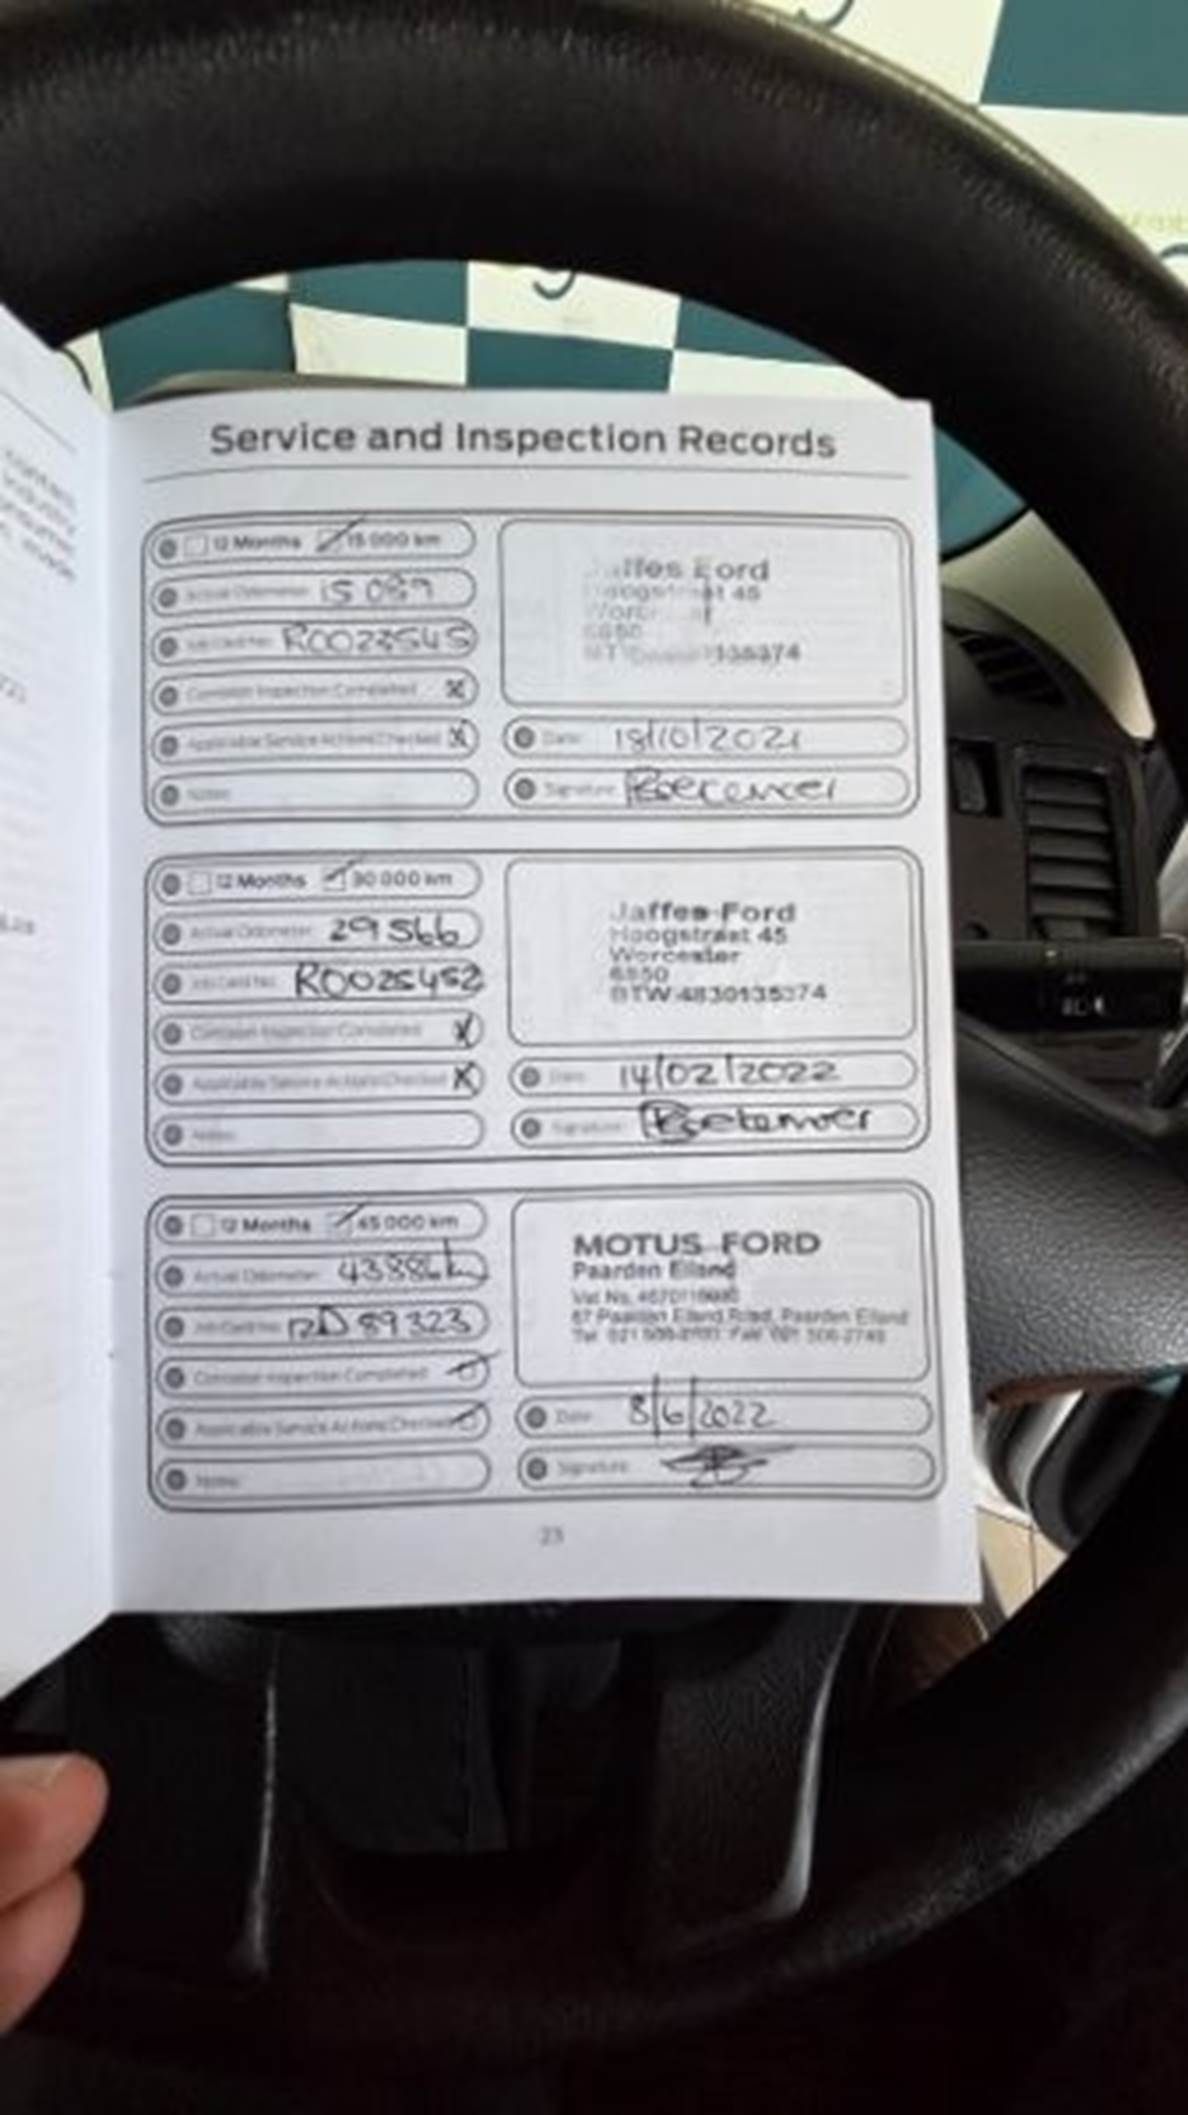 Service and Inspection Records
12 Months 15 000 km
Actual Odometer: 15 089
Job Card No: R0023545
Corrosion Inspection Completed
Applicable Service Actions Checked
Notes:
Jaffes Ford
Hoogstraat 45
Worcester
6850
Date: 18/10/2021
Signature:
12 Months 30 000 km
Actual Odometer: 29 566
Job Card No: R0025452
Corrosion Inspection Completed
Applicable Service Actions Checked
Notes:
Jaffes Ford
Hoogstraat 45
Worcester
6850
BTW 4830135374
Date: 14/02/2022
Signature:
12 Months 45 000 km
Actual Odometer: 43886km
Job Card No: 89323
Corrosion Inspection Completed
Applicable Service Actions Checked
Notes:
MOTUS FORD
Paarden Eiland
Vat No.
67 Paarden Eiland Road, Paarden Eiland
Tel: 021 Fax: 021
Date: 8/6/2022
Signature:
23